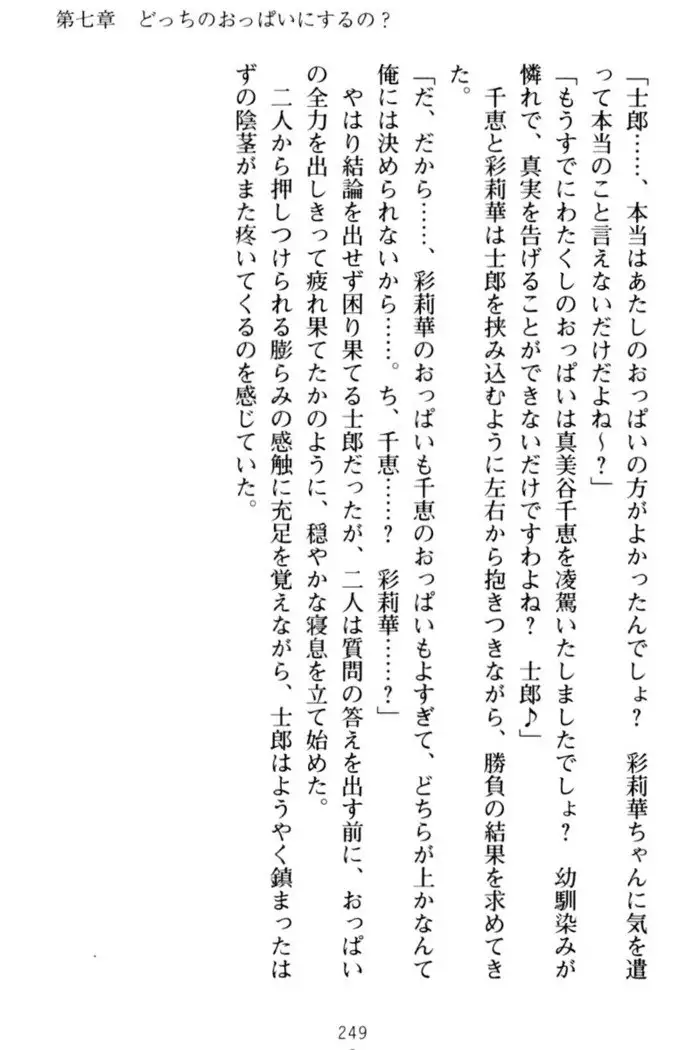 第七章　どっちのおっぱいにするの？
「士郎……、本当はあたしのおっぱいの方がよかったんでしょ？　彩莉華ちゃんに気を遣
って本当のこと言えないだけだよね～？」
「もうすでにわたくしのおっぱいは真美谷千恵を凌駕いたしましたでしょ？　幼馴染みが
憐れで、真実を告げることができないだけですわよね？　士郎♪」
　千恵と彩莉華は士郎を挟み込むように左右から抱きつきながら、勝負の結果を求めてき
た。
「だ、だから……、彩莉華のおっぱいも千恵のおっぱいもよすぎて、どちらが上かなんて
俺には決められないから……。ち、千恵……？　彩莉華……？」
　やはり結論を出せず困り果てる士郎だったが、二人は質問の答えを出す前に、おっぱい
の全力を出しきって疲れ果てたかのように、穏やかな寝息を立て始めた。
　二人から押しつけられる膨らみの感触に充足を覚えながら、士郎はようやく鎮まったは
ずの陰茎がまた疼いてくるのを感じていた。
249